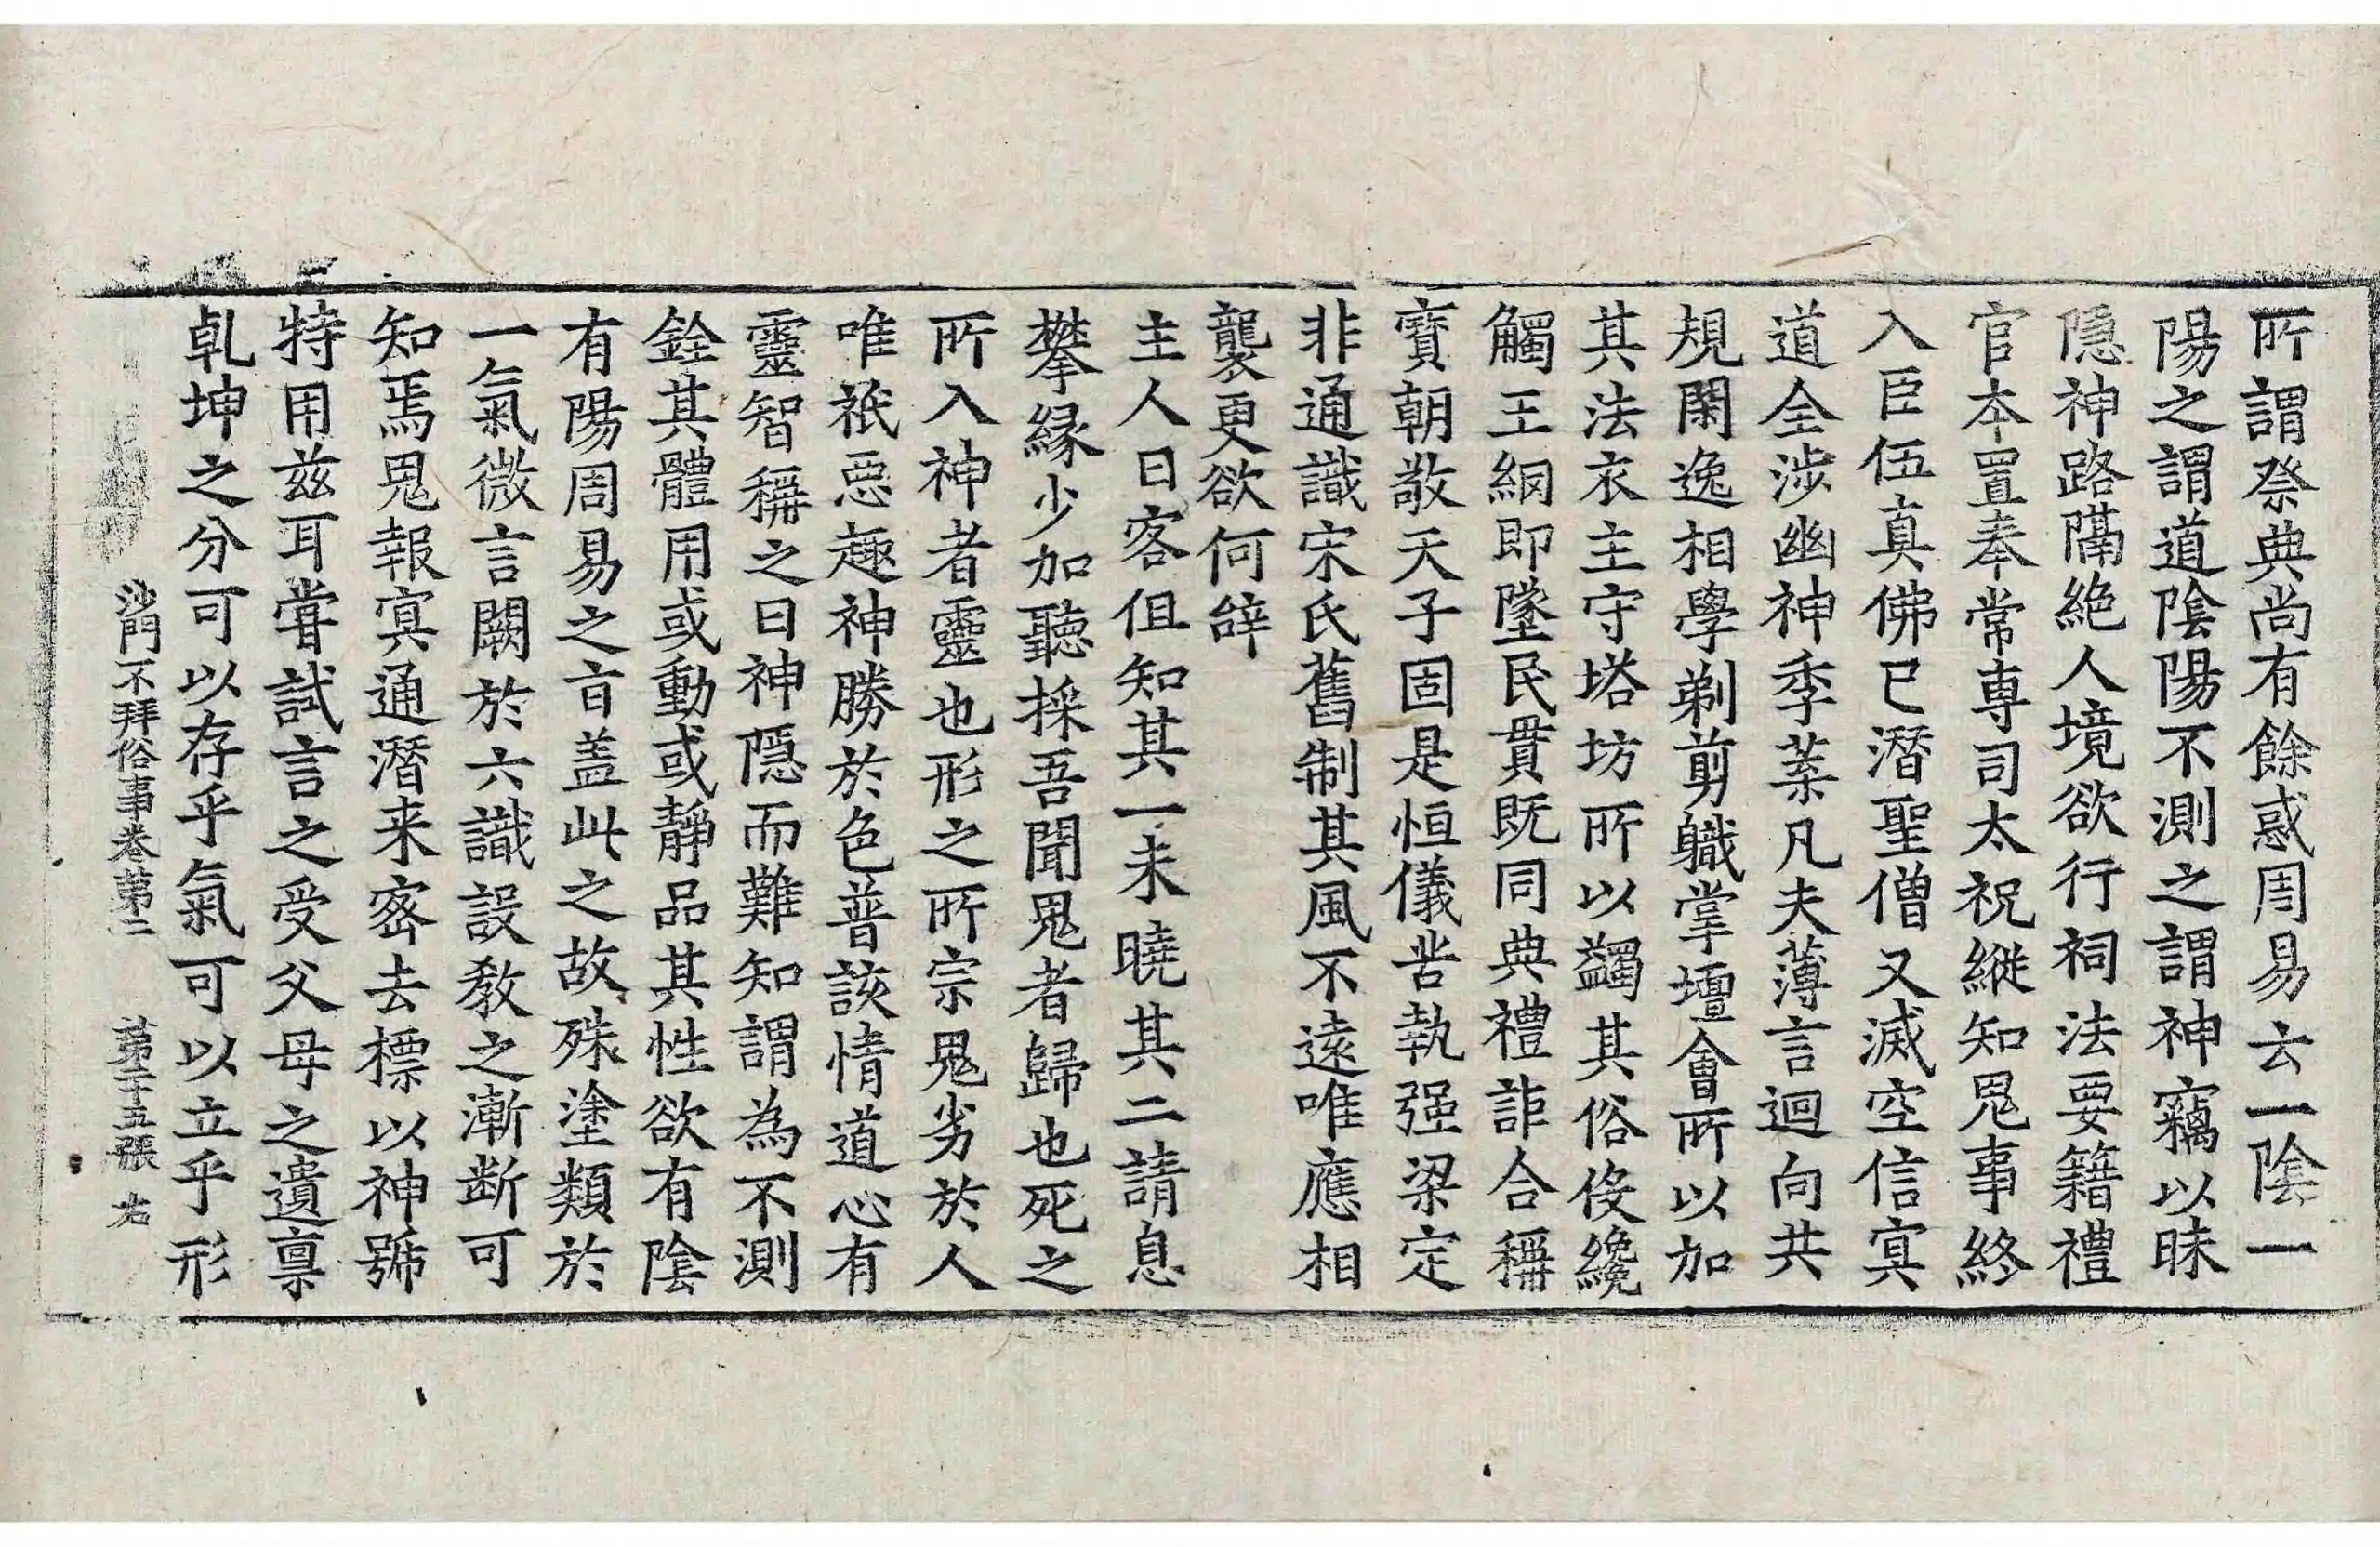 所謂祭典尚有餘惑周易云一陰一
陽之謂道陰陽不測之謂神竊以昧
隱神路隔絶人境欲行祠法要籍禮
官本置奉常專司太祝縱知鬼事終
入臣伍真佛已潛聖僧又滅空信冥
道全涉幽神季葉凡夫薄言迴向共
規閑逸相學剃剪職掌壇會所以加
其法衣主守塔坊所以蠲其俗役纔
觸王網即墜民貫既同典禮詎合稱
寶朝敬天子固是恒儀苦執强梁定
非通識宋氏舊制其風不遠唯應相
襲更欲何辞
主人曰客但知其一未曉其二請息
攀縁少加聽採吾聞鬼者歸也死之
所入神者靈也形之所宗鬼劣於人
唯祇惡趣神勝於色普該情道心有
靈智稱之曰神隱而難知謂為不測
銓其體用或動或靜品其性欲有陰
有陽周易之旨盖此之故殊塗類於
一氣微言闕於六識設教之漸断可
知焉鬼報冥通潛来密去標以神號
特用兹耳嘗試言之受父母之遺禀
乹坤之分可以存乎氣可以立乎形
沙門不拜俗事卷第二 第二十五張 右